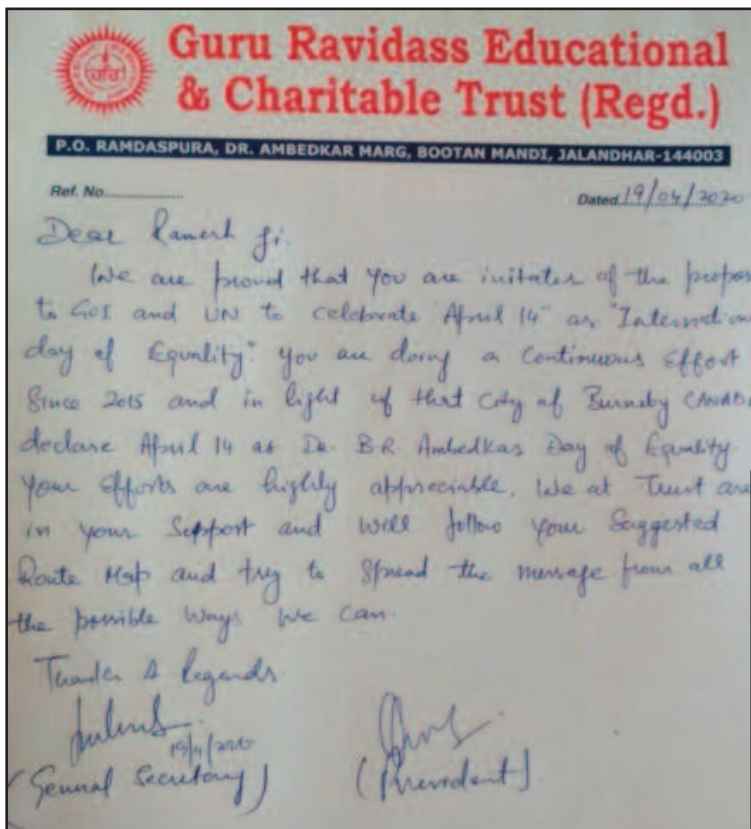 Guru Ravidass Educational
& Charitable Trust (Regd.)
P.O. RAMDASPURA, DR. AMBEDKAR MARG, BOOTAN MANDI, JALANDHAR-144003
Ref. No.............. Dated 19/04/2020
Dear Ramesh Ji.
We are proud that you are initater of the propos
to GOI and UN to celebrate "April 14" as "Internation
day of Equality." you are doing a Continuous Effort
Since 2015 and in light of that City of Burneby CANADA
declare April 14 as Dr. B.R. Ambedkar Day of Equality.
Your Efforts are highly appreciable. We at Trust are
in your Support and will follow your Suggested
Route Map and try to Spread the message from all
the possible ways we can.
Thanks & Regards.
15/4/2020
(General Secretary) (President).